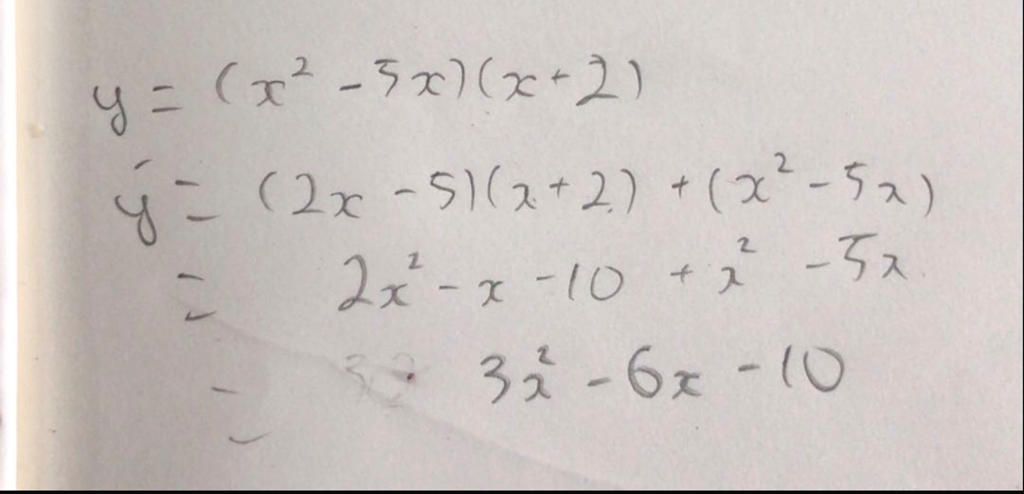 y = (x² - 5x)(x + 2)
y' = (2x - 5)(x + 2) + (x² - 5x)
= 2x² - x - 10 + x² - 5x
= 3x² - 6x - 10